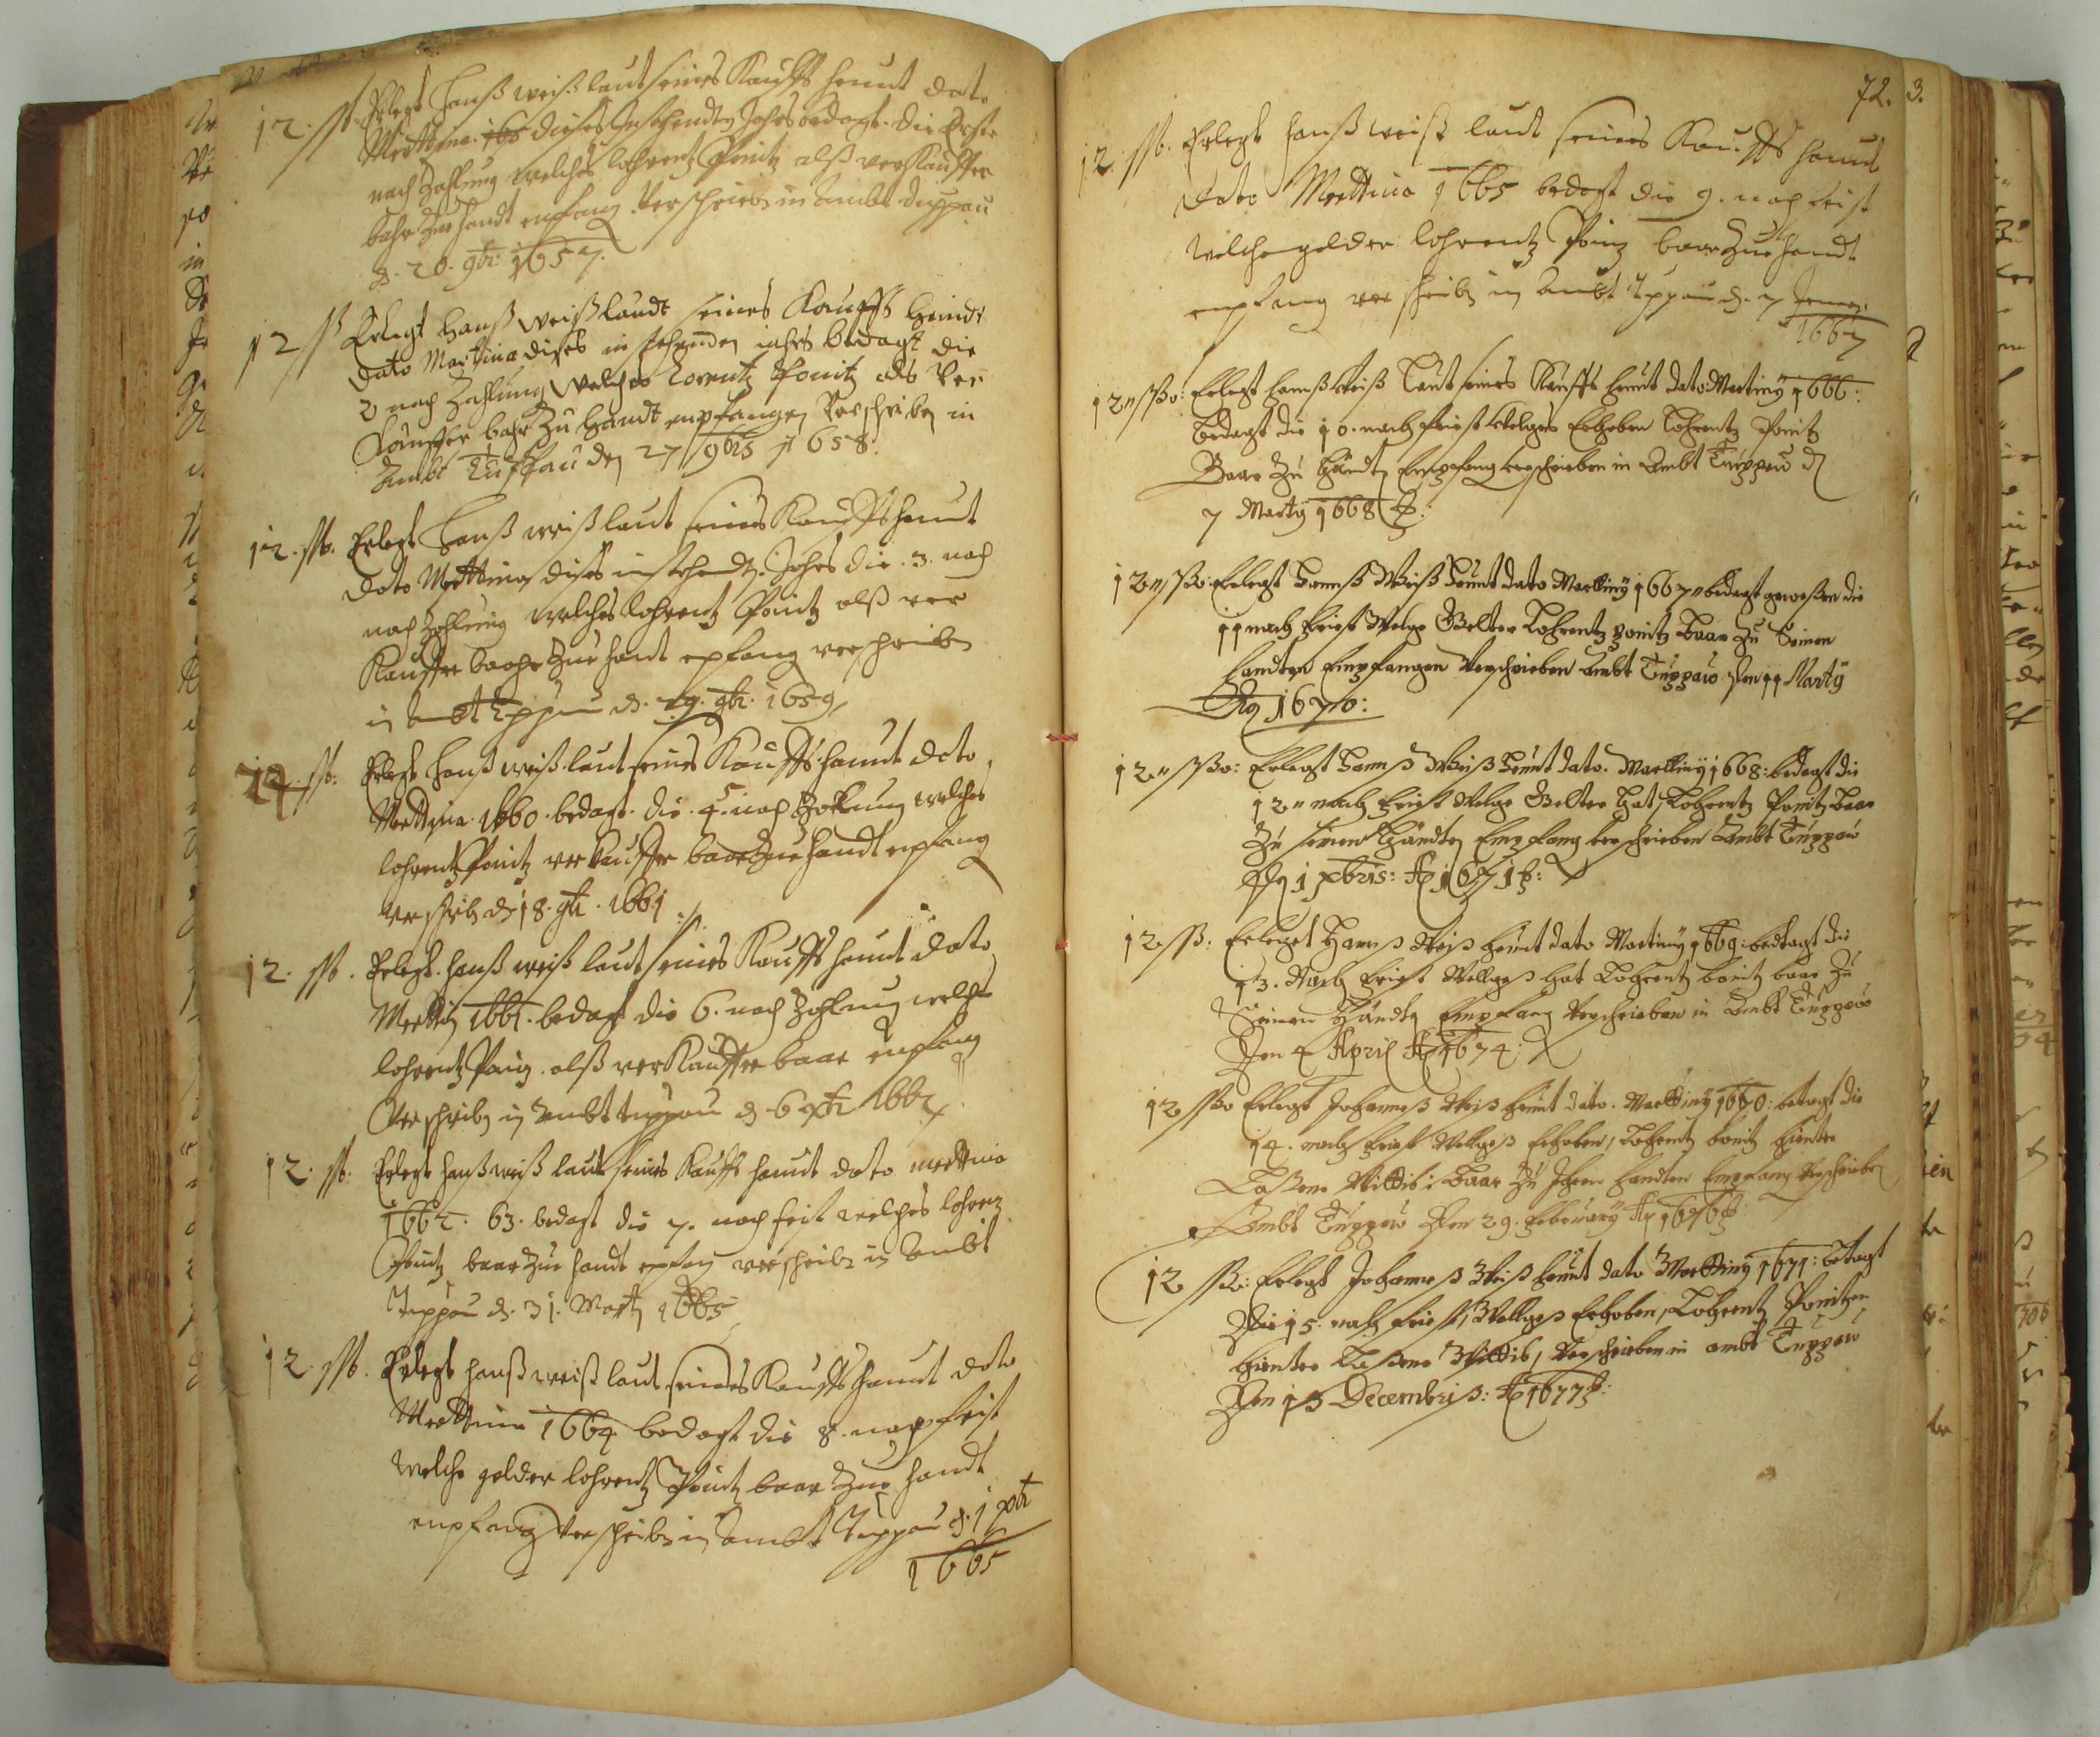 12. ßo. Erlegt Hanß Weiß laut seines Kauffs heunt dato
Marttina dieses instehenden Jahrs bedagt die Erste
nach Zahlung welches Lohrentz Ponitz alß verKauffer
bahr Zue handt empfang. Verschrieben in Ambt Duppau
d. 20. 9br. 1657.
12 ß Erlegt Hanß Weiß laudt seines Kauffs heindt
dato Martina dises instehenden iahrs bedagt die
2 nach Zahlung Welches Lorentz Ponitz als Ver
Kauffer bahr Zu handt empfangen Verschriben in
Ambt Tuppau den 27 9bris 1658.
12. ßo. Erlegt Hanß Weiß laut seines Kauffs heunt
dato Marttina dises instehendt. Jahrs die. 3. nach
nach Zahlung welches Lohrentz Ponitz alß ver
Kauffer baahr Zue handt epfang verschrieb.
in Ambt Tppau d. 29. 9br. 1659
12. ßo. Erlegt Hanß Weiß laut seines Kauffs heunt dato
Marttina. 1660. bedagt. die. 5. nach Zahlung welches
Lohrentz Ponitz verkauffer baar Zue handt epfang
verschrib. d. 18. 9br. 1661
12. ßo. Erlegt. Hanß Weiß laut seines Kauffs heunt dato
Marttin 1661. bedagt die 6. nach Zahlung welche
Lohrentz Ponitz. alß verKauffer baar empfang
Verschrieb. in Ambt tuppau d. 6 xbr 1662
12. ßo. Erlegt Hanß Weiß laut seines Kauffs heunt dato marttina
1662. 63. bedagt die 7. nach frist welches Lohrenz
Ponitz baar Zue handt epfang verschrib. in Ambt
Tuppau d. 31. Marty 1665
12. ßo. Erlegt Hanß Weiß laut seines Kauffs heunt dato
Marttina 1664 bedagt die 8. nach frist
Welche gelder Lohrentz Ponitz baar Zue handt
empfang Verschrieb. in Ambt Tuppau d. 1 xbr
1665
72. 3.
12. ßo. Erlegt Hanß Weiß laut seines Kauffs heunt
dato Marttina 1665 bedagt die 9. nach frist
Welche gelder Lohrentz Poniz baar Zue handt
empfang verschrib. in Ambt Tppau d. 7
1667
12" ßo: Erlegt Hanß Weiß Laut seines Kauffs heunt dato Martiny 1666:
bedagt die 10. nach frist Welches Erheben Lohrentz Ponitz
Baar Zu händten Empfang verschrieben in Ambt Tuppau d
7 Marty 1668
12" ßo: Erlegt Hannß Weiß heunt dato Marttiny 1667" bedagt geweßen die
11 nach frist Welche Gelter Lohrentz Ponitz baar Zu Seinen
handten Empfangen Verschrieben Ambt Tuppau Den 11 Marty
Ao 1670:
12" ßo: Erlegt Hannß Weiß heunt dato. Marttiny 1668: bedagt die
12" nach frist Welche Gelter hat Lohrentz Ponitz baar
Zu seinen händten Empfang verschrieben Ambt Tuppau
Den 1 xbris: Ao 1671
12. ß: Erleget Hannß Weiß heunt dato Martiny 1669: bedtagt die
13. Nach frist Wellges hat Lohrentz bonitz baar Zu
Seinen händten Empfang Verschrieben in Ambt Tuppau
Den 4 April Ao 1674:
12 ßo Erlegt Johanneß Weiß heunt dato. Marttiny 1670: betagt die
14. nach frist Wellgeß Erhoben, Lohrentz bonitz hienter
Laßene Wittib: baar Zu Ihren handten Empfang Verschrieben
Ambt Tuppau Den 29. February Ao 1676
12 ßo: Erlegt Johanneß Weiß heunt dato Marttiny 1671: betagt
Die 15. nach frist, Wellgeß Erhoben, Lohrentz Ponitzen
hienter Laßene Wittib, Verschrieben in ambt Tuppau
Den 13 Decembris: Ao 1677